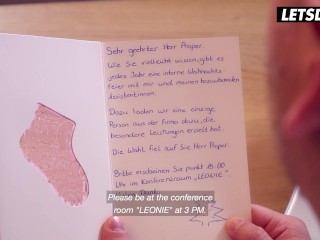 LETSD
Sehr geehrter Herr Prosper.
Wie Sie vielleicht wissen, gibt es
jedes Jahr eine interne Weihnachts
feier mit mir und meinen bezaubernden
Assistentinnen.
Dazu laden wir eine einzige
Person aus der Firma dazu, die
besondere Leistungen erzielt hat.
Die Wahl fiel auf Sie Herr Prosper.
Bitte erscheinen Sie punkt 15.00
Uhr im Konferenzraum "LEONIE".
Please be at the conference
room "LEONIE" at 3 PM.